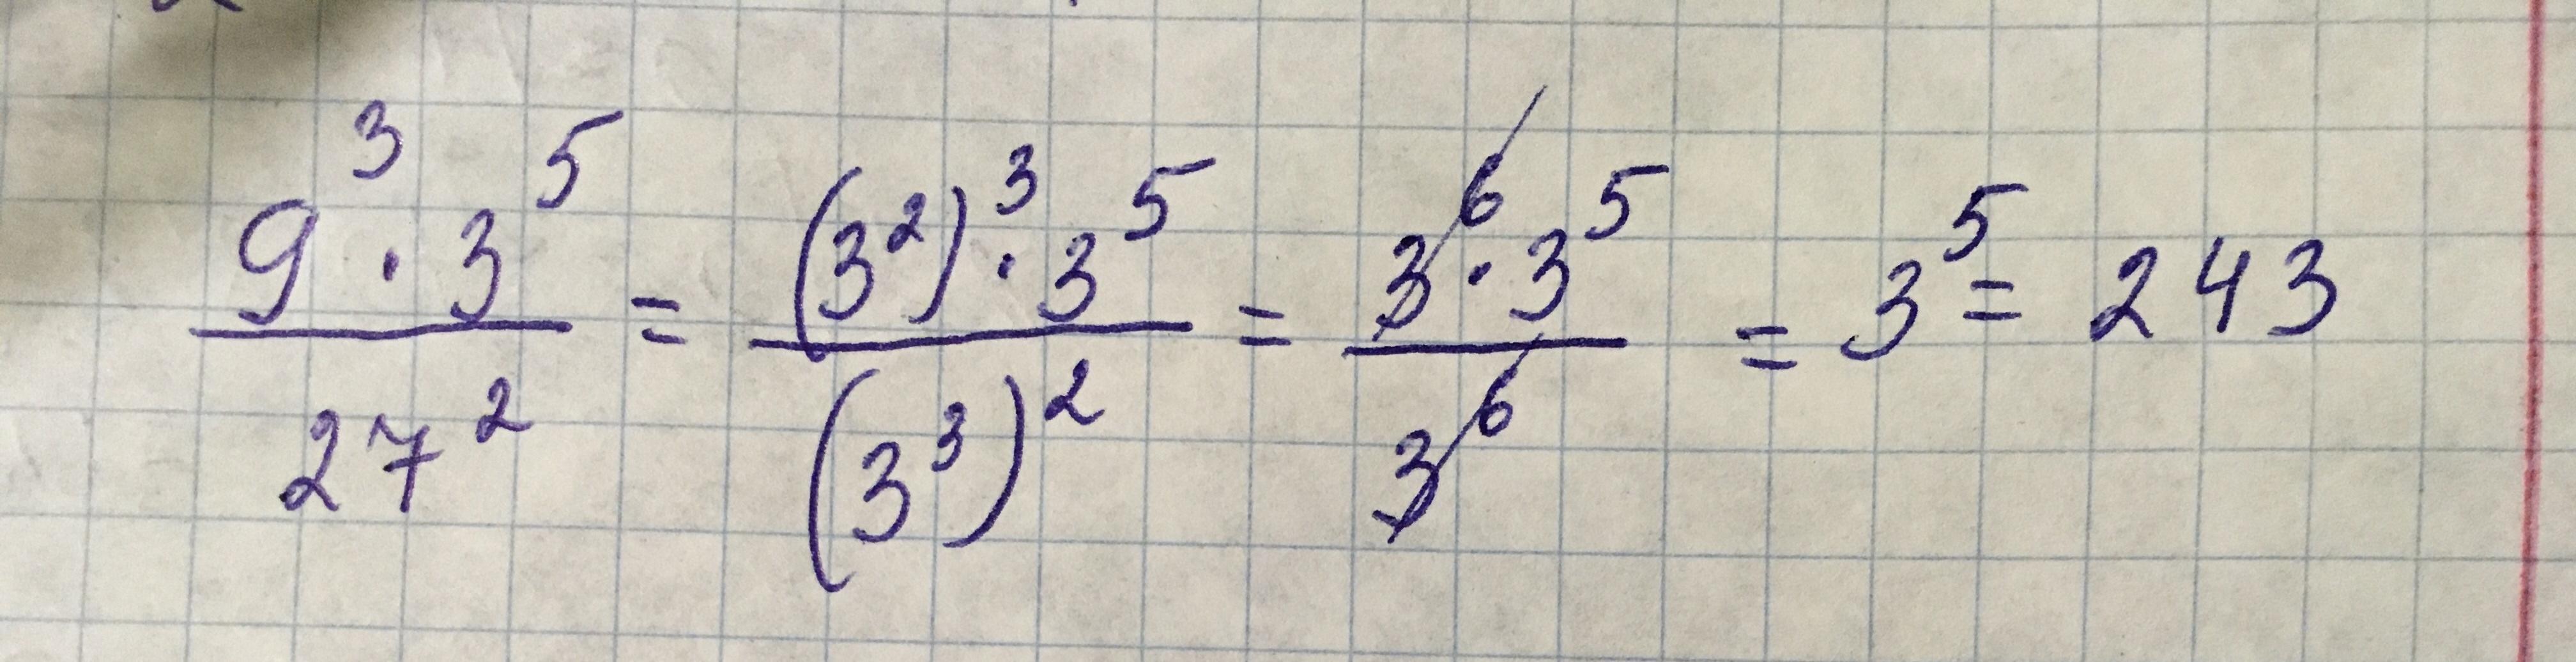 9³ · 3⁵ / 27² = (3²)³ · 3⁵ / (3³)² = 3⁶ · 3⁵ / 3⁶ = 3⁵ = 243